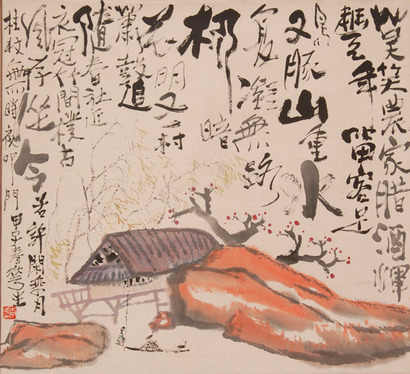 莫笑農家腊酒渾
豐年留客足
雞豚
山重水
復疑無路
柳暗
花明又一村
簫鼓追
隨春社近
衣冠簡樸古
風存從今
若許閒乘月
拄杖無時夜叩門
甲子春